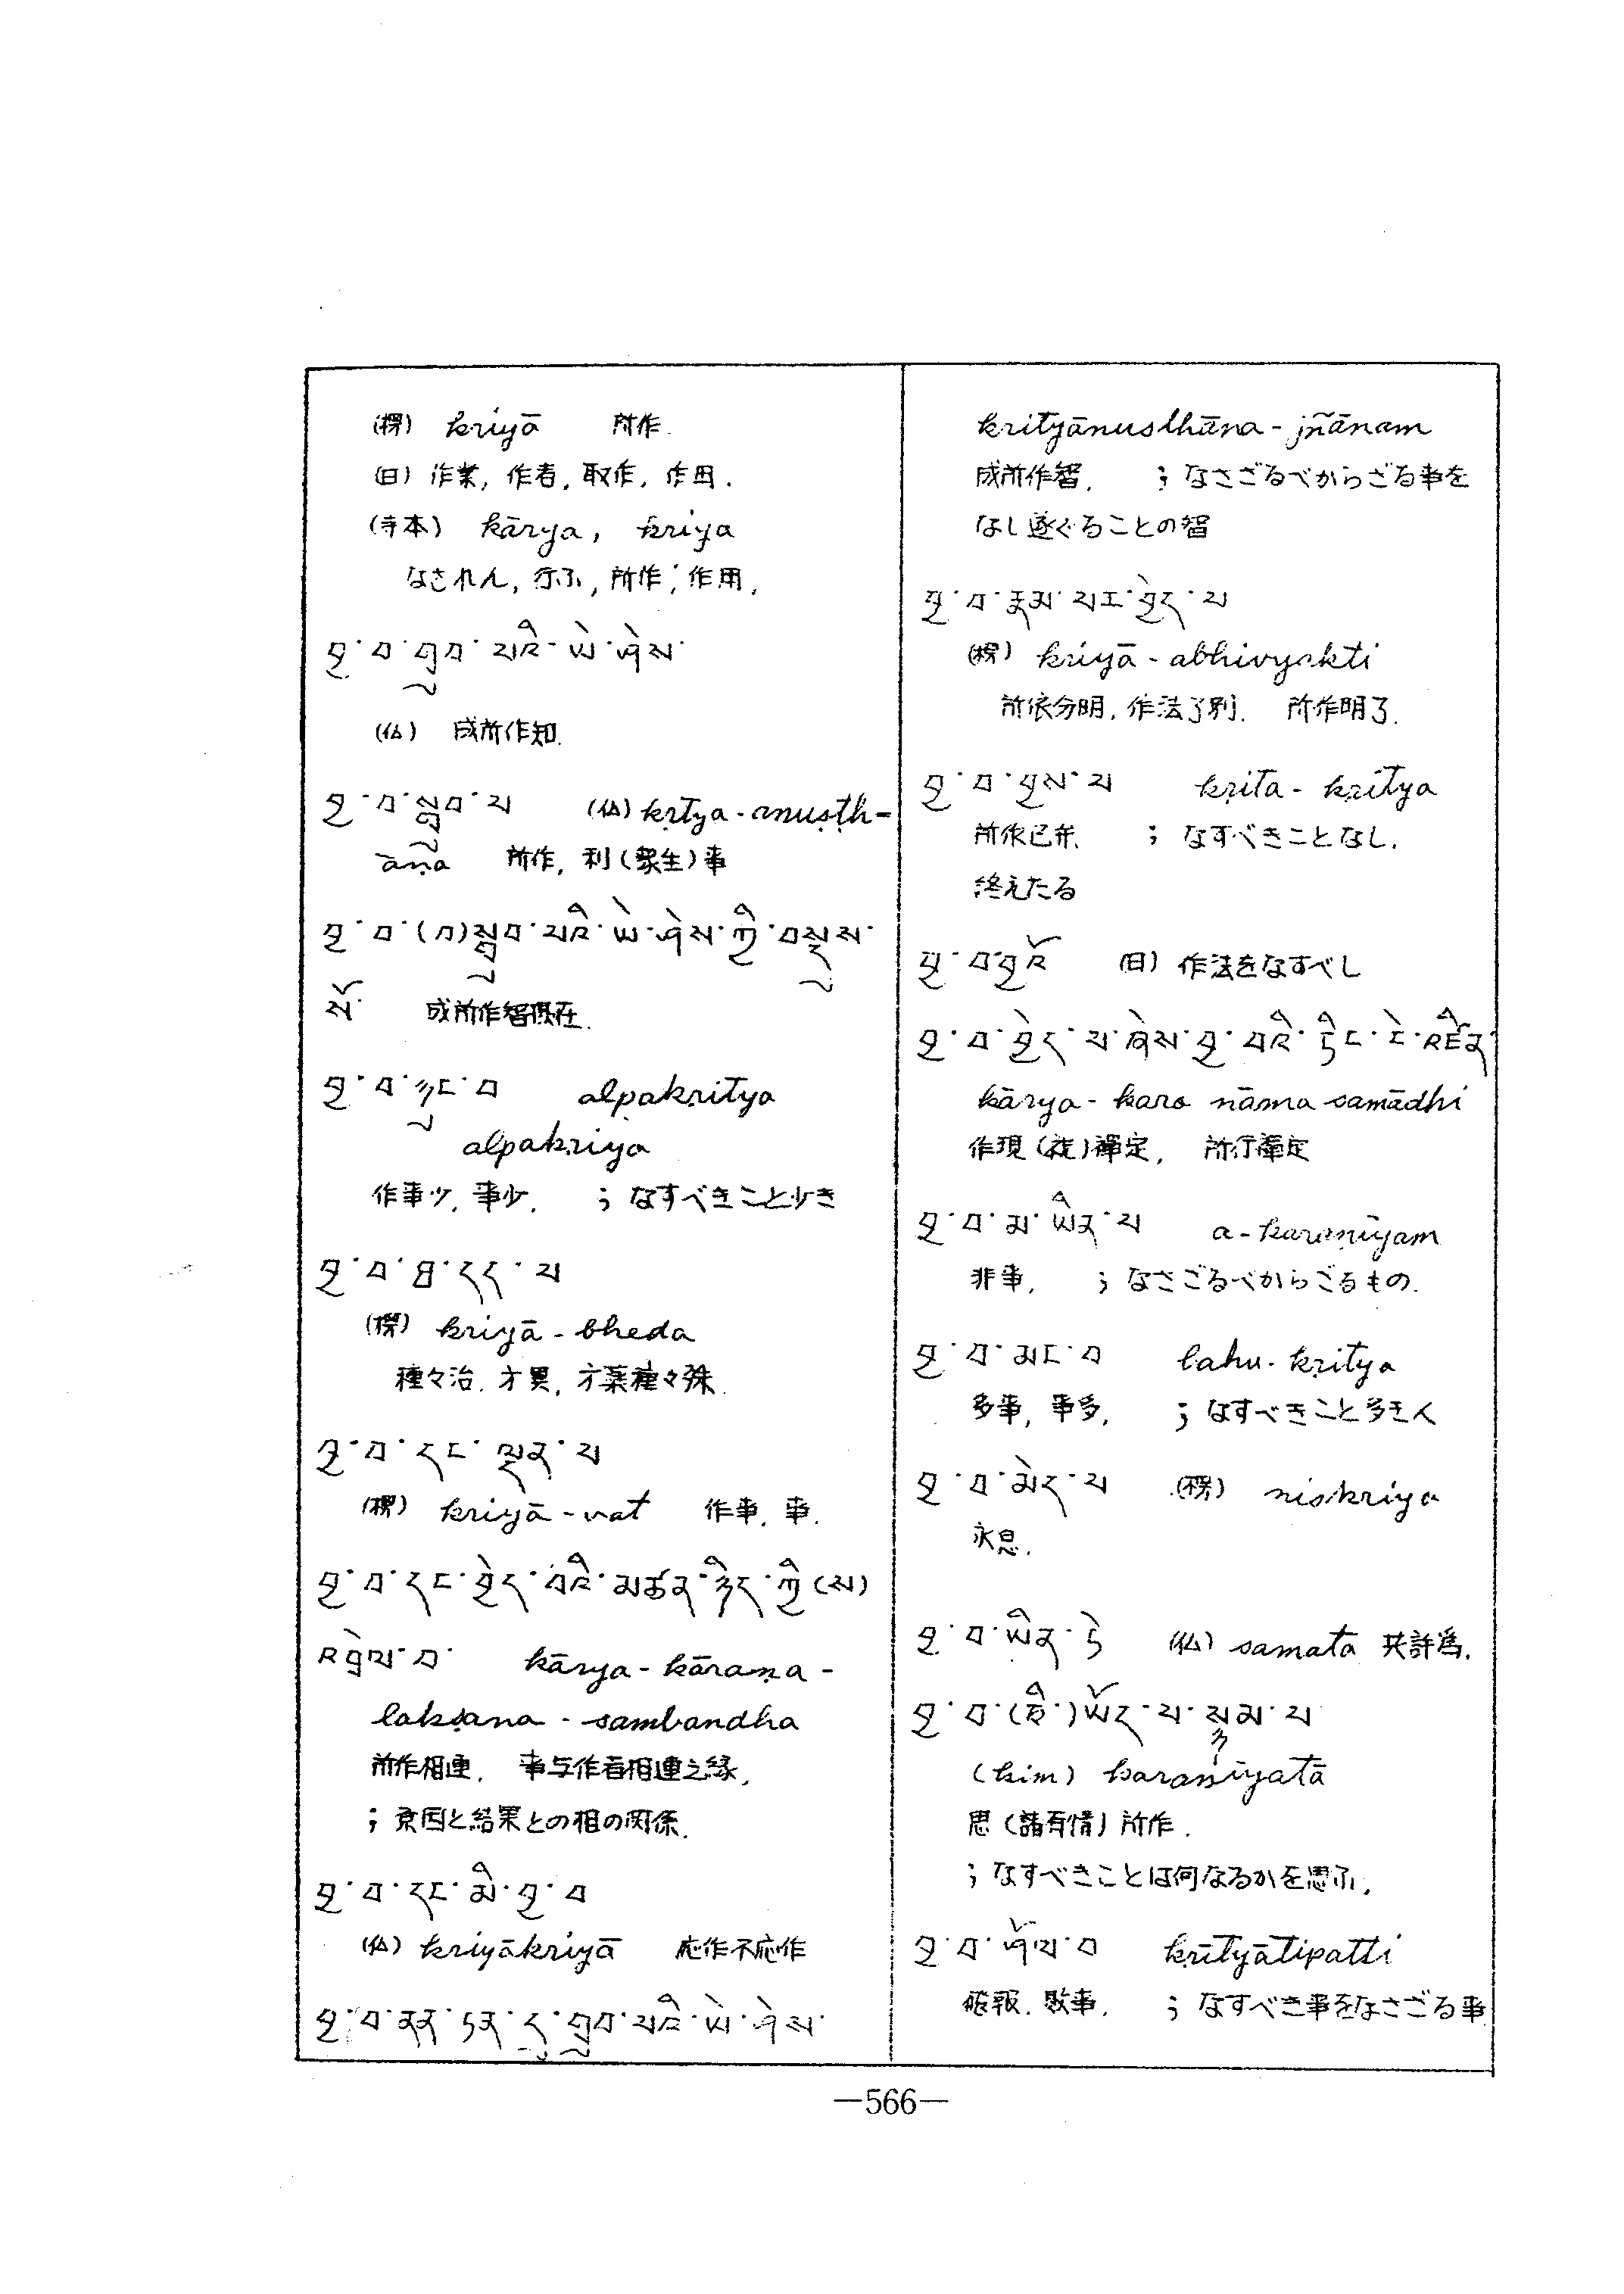 (楞) kriyā 所作.
(日) 作業, 作者, 取作, 作用.
(寺本) kārya, kriya
なされん, 行ふ, 所作, 作用,
བྱ་བ་གྲུབ་པའི་ཡེ་ཤེས་
(仏) 成所作知.
བྱ་བ་སྒྲུབ་པ (仏) kṛtya-anuṣṭh-
āṇa 所作, 利(衆生)事
བྱ་བ་(བ)སྒྲུབ་པའི་ཡེ་ཤེས་ཀྱི་བསྡུས་
སོ་ 成所作智倶在.
བྱ་བ་ཉུང་བ alpakṛitya
alpakriya
作事少, 事少. ; なすべきこと少き
བྱ་བ་ཐ་དད་པ
(楞) kriyā-bheda
種々治, 才異, 方薬種々殊.
བྱ་བ་དང་ལྡན་པ
(楞) kriyā-vat 作事, 事.
བྱ་བ་དང་བྱེད་པའི་མཚན་ཉིད་ཀྱི(ས)
འབྲེལ་བ་ kārya-kāraṇa-
lakṣana-sambandha
所作相連. 事与作者相連之縁,
; 原因と結果との相の関係.
བྱ་བ་དང་མི་བྱ་བ
(仏) kriyākriyā 応作不応作
བྱ་བ་ནན་ཏན་དུ་གྲུབ་པའི་ཡེ་ཤེས་
krityānusthāna-jñānam
成所作智. ; なさざるべからざる事を
なし遂ぐることの智
བྱ་བ་རྣམ་པར་བྱེད་པ
(楞) kriyā-abhivyakti
所依分明, 作法了別. 所作明了.
བྱ་བ་བྱས་པ kṛita-kṛitya
所作已弁. ; なすべきことなし.
終えたる
བྱ་བ་བྱའོ (日) 作法をなすべし
བྱ་བ་བྱེད་པ་ཞེས་བྱ་བའི་ཏིང་ངེ་འཛིན་
kārya-karo nāma samādhi
作現()禅定, 所行禅定
བྱ་བ་མ་ཡིན་པ a-karaṇīyam
非事, ; なさごるべからごるもの.
བྱ་བ་མང་བ bahu-kṛitya
多事, 事多, ; なすべきこと多き人
བྱ་བ་མེད་པ (楞) niskriya
永息.
བྱ་བ་ཡིན་ཏེ (仏) samata 共許為.
བྱ་བ་(ཅི་)ཡོད་པ་སྙམ་པ
(kim) karaṇīyatā
思(諸有情)所作.
; なすべきことは何なるかを思ふ,
བྱ་བ་ཤོལ་བ kṛityātipatti
報, 敗事, ; なすべき事をなさざる事
—566—